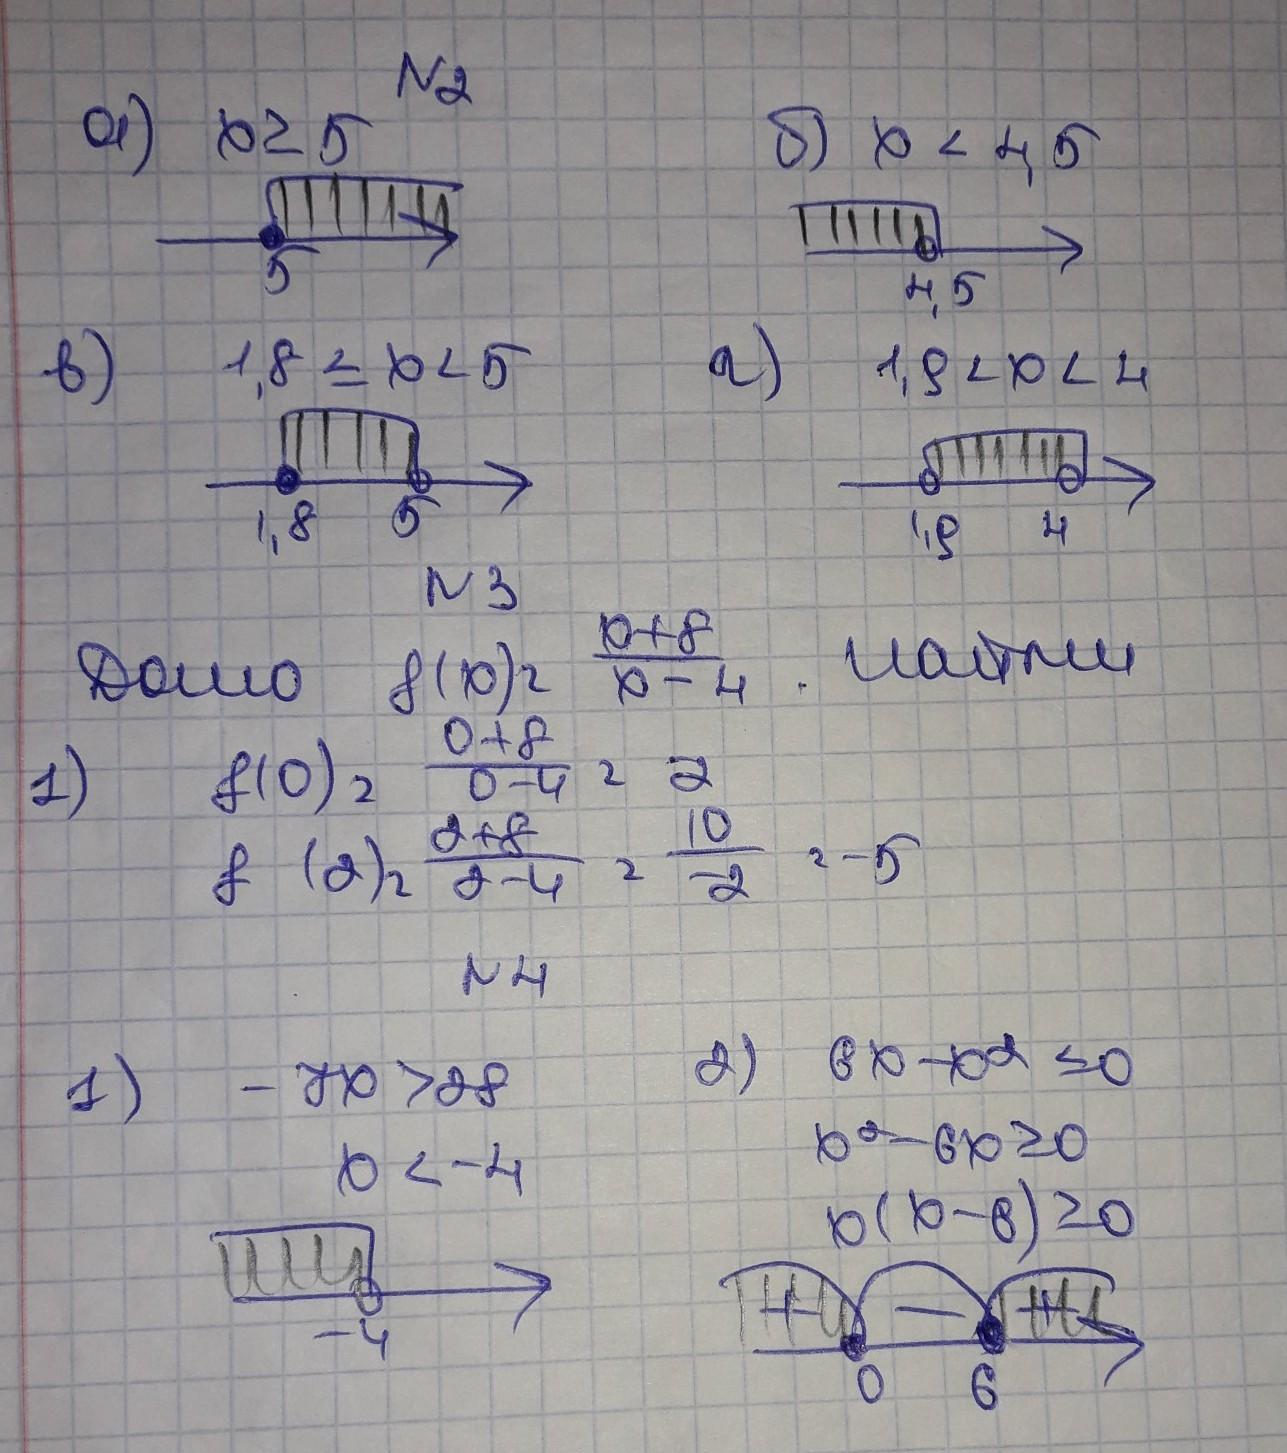 N2
а) x ≥ 5 б) x < 4,5
5 4,5
в) 1,8 ≤ x < 5 г) 1,9 < x < 4
1,8 5 1,9 4
N3
Дано f(x) = (x+8)/(x-4). Найти
1) f(0) = (0+8)/(0-4) = 2
f (2) = (2+8)/(2-4) = 10/-2 = -5
N4
1) -7x > 28 2) 6x - x² ≤ 0
x < -4 x² - 6x ≥ 0
x(x-6) ≥ 0
+ - +
-4 0 6